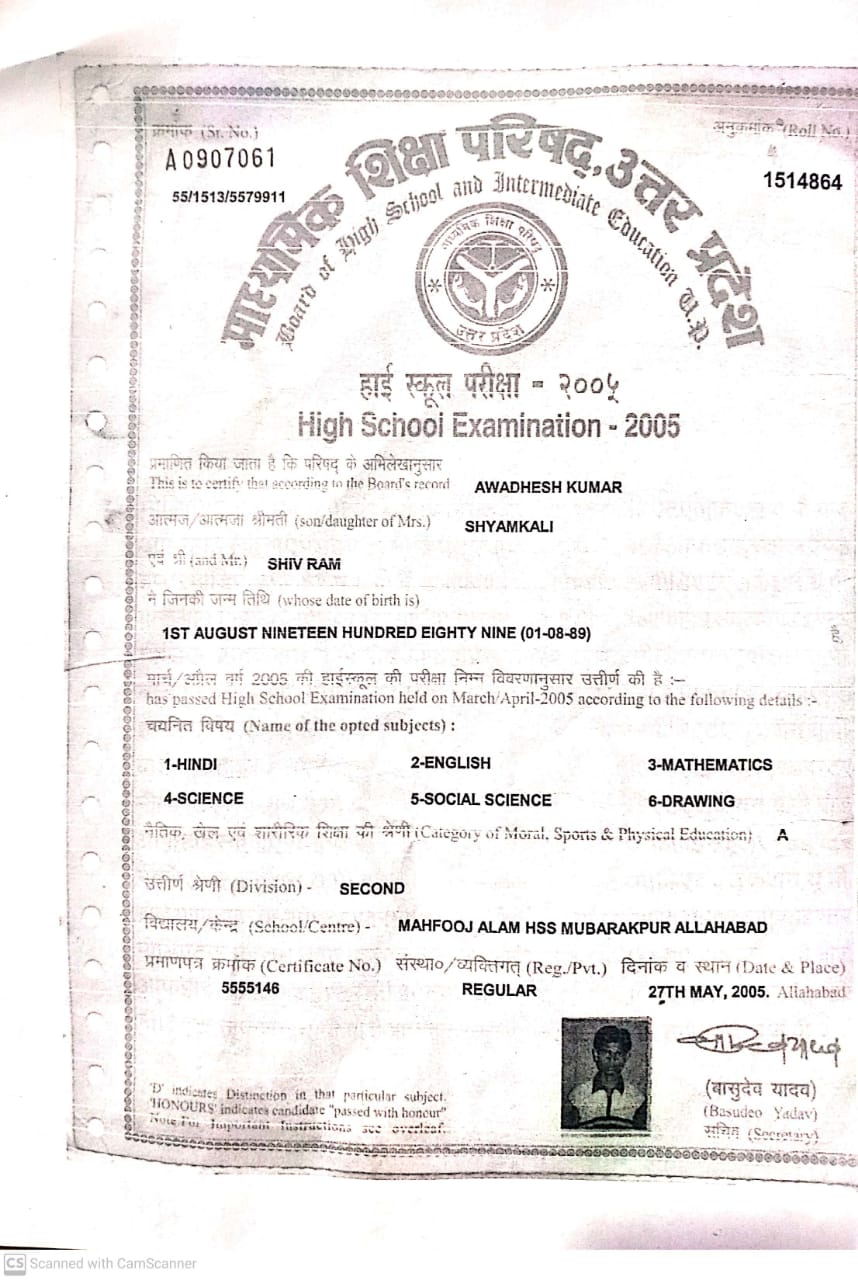 क्रमांक (Sr. No.)
अनुक्रमांक (Roll No.)
A0907061
1514864
55/1513/5579911
माध्यमिक शिक्षा परिषद्, उत्तर प्रदेश
Board of High School and Intermediate Education U.P.
माध्यमिक शिक्षा परिषद्
उत्तर प्रदेश
हाई स्कूल परीक्षा - २००५
High School Examination - 2005
प्रमाणित किया जाता है कि परिषद् के अभिलेखानुसार
This is to certify that according to the Board's record AWADHESH KUMAR
आत्मज/आत्मजा श्रीमती (son/daughter of Mrs.) SHYAMKALI
एवं श्री (and Mr.) SHIV RAM
ने जिनकी जन्म तिथि (whose date of birth is)
1ST AUGUST NINETEEN HUNDRED EIGHTY NINE (01-08-89) है,
मार्च/अप्रैल वर्ष 2005 की हाईस्कूल की परीक्षा निम्न विवरणानुसार उत्तीर्ण की है :-
has passed High School Examination held on March/April-2005 according to the following details :-
चयनित विषय (Name of the opted subjects) :
1-HINDI 2-ENGLISH 3-MATHEMATICS
4-SCIENCE 5-SOCIAL SCIENCE 6-DRAWING
नैतिक, खेल एवं शारीरिक शिक्षा की श्रेणी (Category of Moral, Sports & Physical Education) A
उत्तीर्ण श्रेणी (Division) - SECOND
विद्यालय/केन्द्र (School/Centre) - MAHFOOJ ALAM HSS MUBARAKPUR ALLAHABAD
प्रमाणपत्र क्रमांक (Certificate No.) संस्था०/व्यक्तिगत् (Reg./Pvt.) दिनांक व स्थान (Date & Place)
5555146 REGULAR 27TH MAY, 2005. Allahabad
'D' indicates Distinction in that particular subject.
'HONOURS' indicates candidate "passed with honour"
Note For Important Instructions see overleaf.
(बासुदेव यादव)
(Basudeo Yadav)
सचिव (Secretary)
CS Scanned with CamScanner